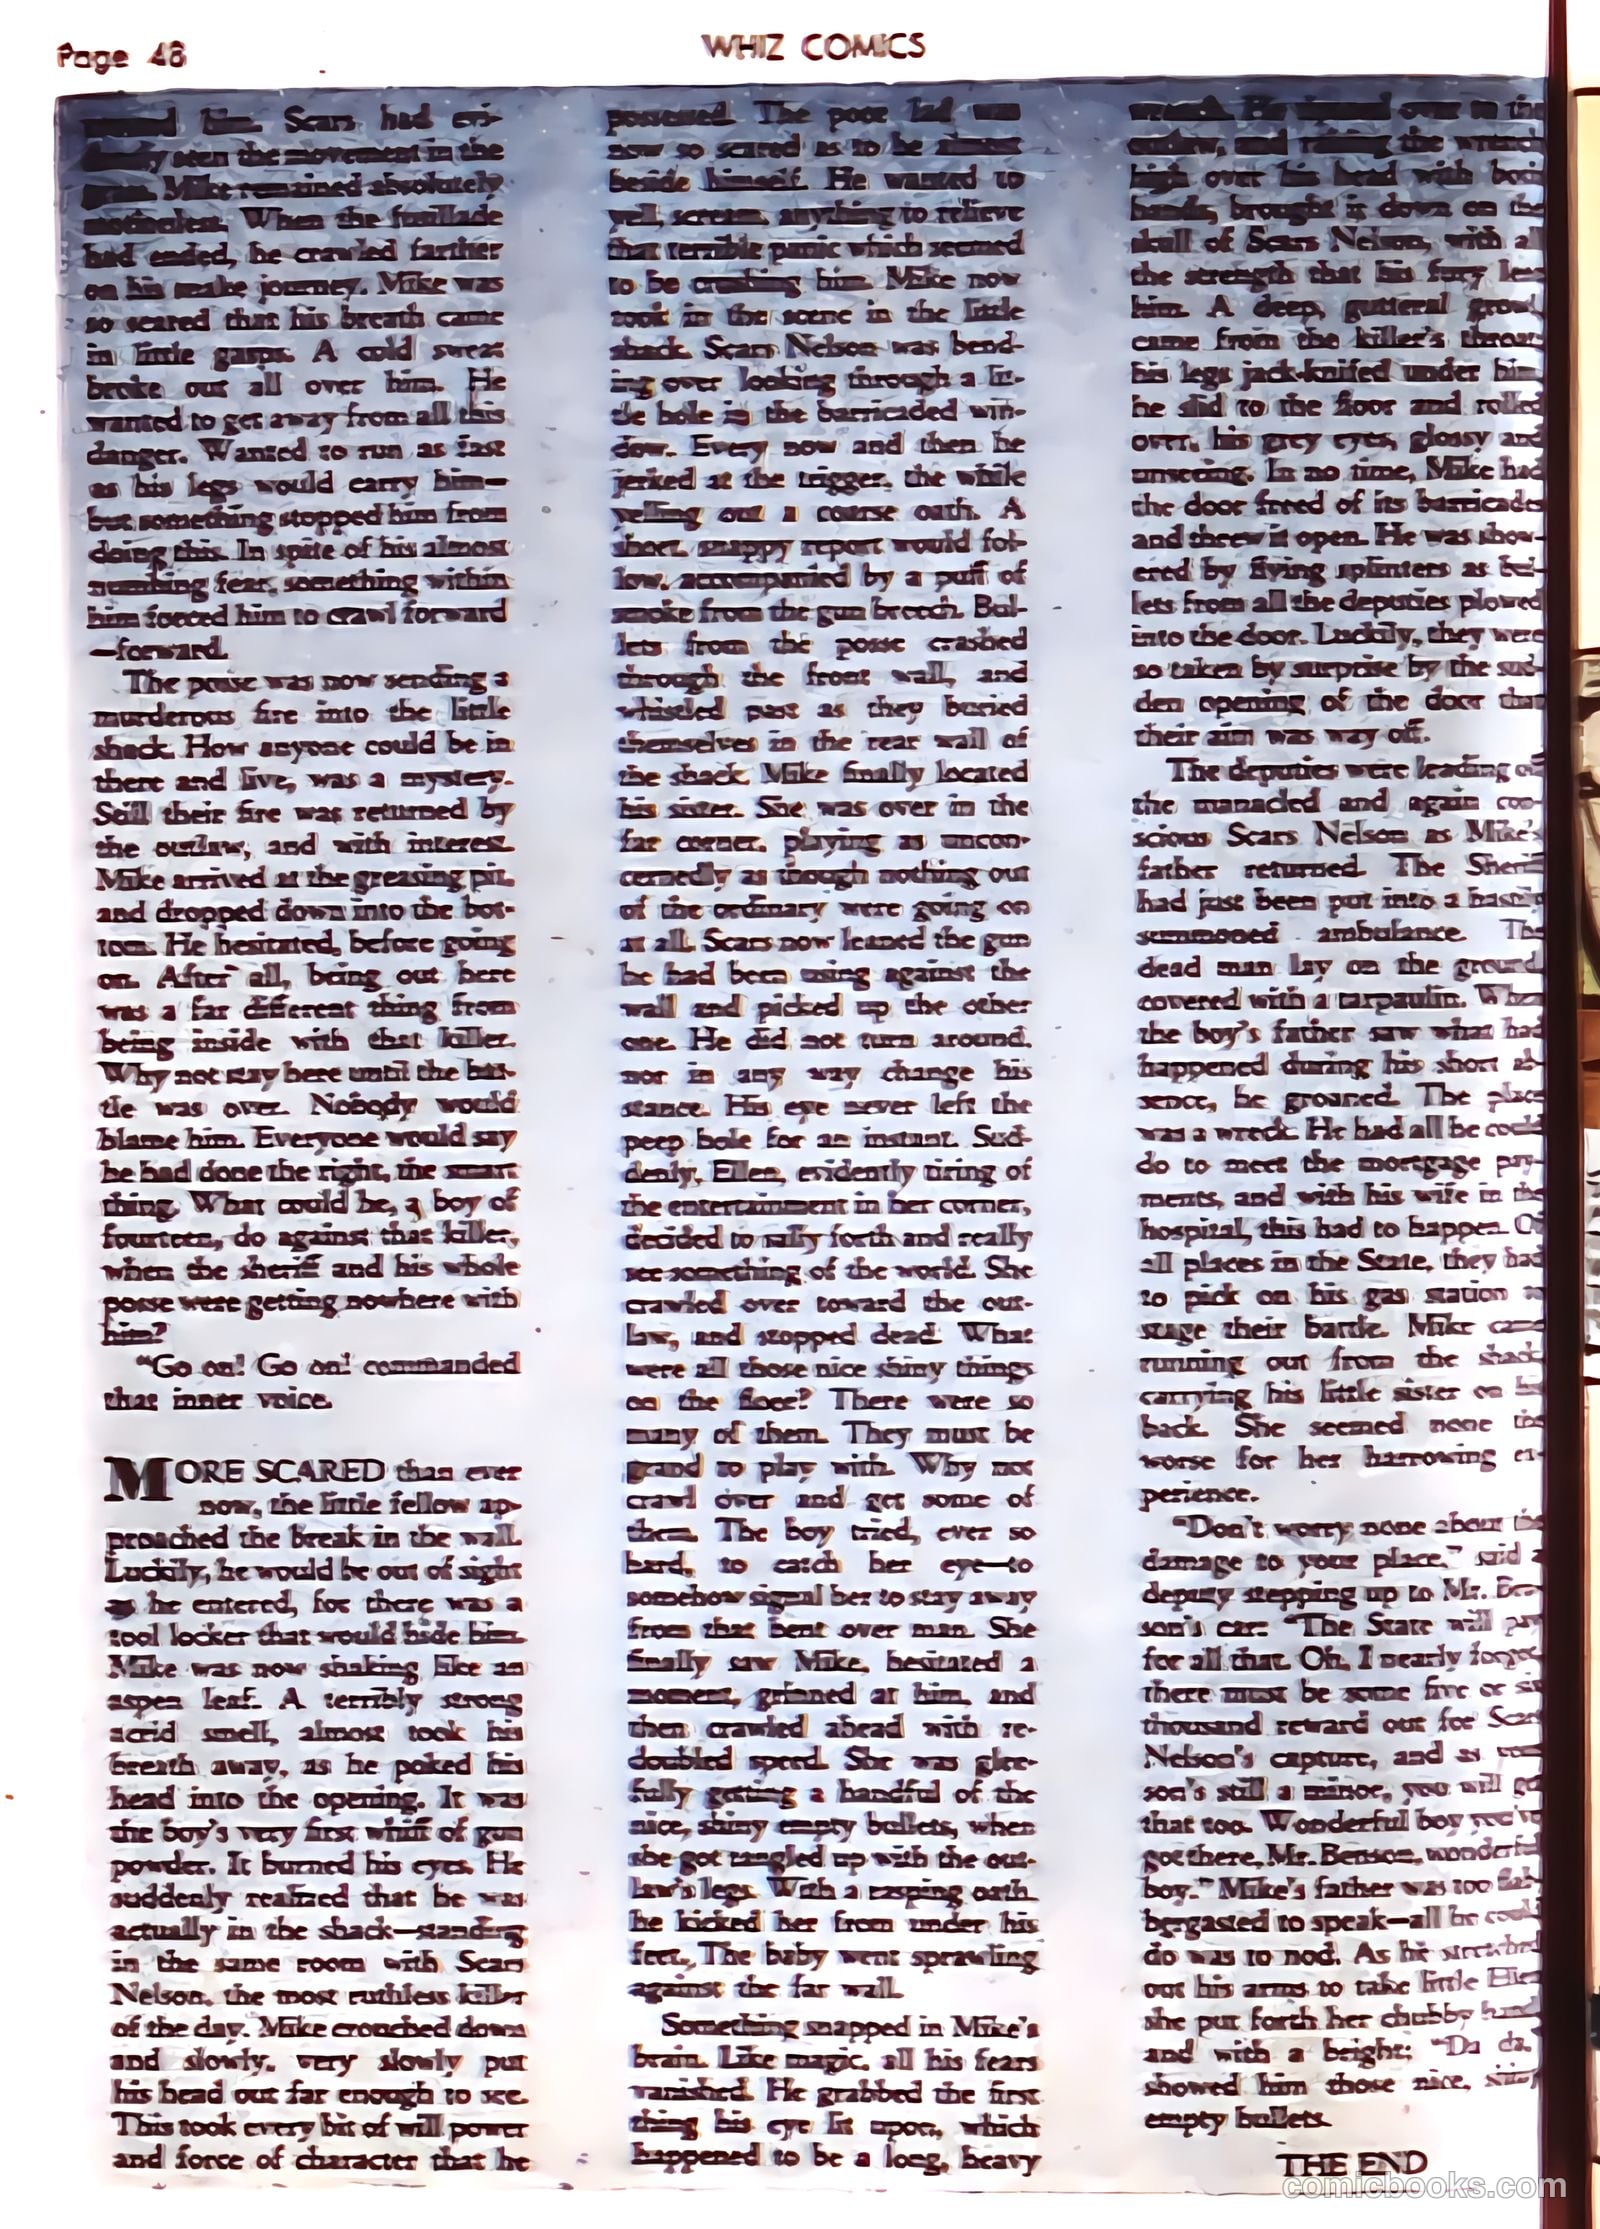 Page 48
WHIZ COMICS
around him. Scars had evi-
dently seen the movement in the
grass. Mike remained absolutely
motionless. When the fusillade
had ended, he crawled farther
on his snake journey. Mike was
so scared that his breath came
in little gasps. A cold sweat
broke out all over him. He
wanted to get away from all this
danger. Wanted to run as fast
as his legs would carry him—
but something stopped him from
doing this. In spite of his almost
numbing fear, something within
him forced him to crawl forward
—forward.
The posse was now sending a
murderous fire into the little
shack. How anyone could be in
there and live, was a mystery.
Still their fire was returned by
the outlaw, and with interest.
Mike arrived at the greasing pit,
and dropped down into the bot-
tom. He hesitated, before going
on. After all, being out here
was a far different thing from
being inside with that killer.
Why not stay here until the bat-
tle was over. Nobody would
blame him. Everyone would say
he had done the right, the smart
thing. What could he, a boy of
fourteen, do against that killer,
when the sheriff and his whole
posse were getting nowhere with
him?
"Go on! Go on! commanded
that inner voice.
MORE SCARED than ever
now, the little fellow ap-
proached the break in the wall.
Luckily, he would be out of sight
as he entered, for there was a
tool locker that would hide him.
Mike was now shaking like an
aspen leaf. A terribly strong
acrid smell, almost took his
breath away, as he poked his
head into the opening. It was
the boy's very first whiff of gun
powder. It burned his eyes. He
suddenly realized that he was
actually in the shack—standing
in the same room with Scars
Nelson, the most ruthless killer
of the day. Mike crouched down
and slowly, very slowly put
his head out far enough to see.
This took every bit of will power
and force of character that he
possessed. The poor lad was
now so scared as to be almost
beside himself. He wanted to
yell, scream, anything to relieve
that terrible panic which seemed
to be crushing him. Mike now
took in the scene in the little
shack. Scars Nelson was bend-
ing over looking through a lit-
tle hole in the barricaded win-
dow. Every now and then he
jerked at the trigger, the while
yelling out a coarse oath. A
short, snappy report would fol-
low, accompanied by a puff of
smoke from the gun breech. Bul-
lets from the posse crashed
through the front wall, and
whistled past as they buried
themselves in the rear wall of
the shack. Mike finally located
his sister. She was over in the
far corner, playing as uncon-
cernedly as though nothing out
of the ordinary were going on
at all. Scars now leaned the gun
he had been using against the
wall and picked up the other
one. He did not turn around,
nor in any way change his
stance. His eye never left the
peep hole for an instant. Sud-
denly, Ellen, evidently tiring of
the entertainment in her corner,
decided to sally forth and really
see something of the world. She
crawled over toward the out-
law, and stopped dead. What
were all those nice shiny things
on the floor? There were so
many of them. They must be
grand to play with. Why not
crawl over and get some of
them. The boy tried, ever so
hard, to catch her eye—to
somehow signal her to stay away
from that bent over man. She
finally saw Mike, hesitated a
moment, grinned at him, and
then crawled ahead with re-
doubled speed. She was glee-
fully getting a handful of the
nice, shiny empty bullets, when
she got tangled up with the out-
law's legs. With a rasping oath
he kicked her from under his
feet. The baby went sprawling
against the far wall.
Something snapped in Mike's
brain. Like magic, all his fears
vanished. He grabbed the first
thing his eye lit upon, which
happened to be a long, heavy
wrench. He turned over to the
outlaw, and raising the wrench
high over his head with both
hands, brought it down on the
skull of Scars Nelson, with all
the strength that his fury lent
him. A deep, gutteral growl
came from the killer's throat,
his legs jack-knifed under him,
he slid to the floor and rolled
over, his grey eyes, glossy and
unseeing. In no time, Mike had
the door freed of its barricade
and threw it open. He was show-
ered by flying splinters as bul-
lets from all the deputies plowed
into the door. Luckily, they were
so taken by surprise by the sud-
den opening of the door that
their aim was way off.
The deputies were leading off
the manacled and again con-
scious Scars Nelson as Mike's
father returned. The Sheriff
had just been put into a hastily
summoned ambulance. The
dead man lay on the ground
covered with a tarpaulin. When
the boy's father saw what had
happened during his short ab-
sence, he groaned. The place
was a wreck. He had all he could
do to meet the mortgage pay-
ments, and with his wife in the
hospital, this had to happen. Of
all places in the State, they had
to pick on his gas station to
stage their battle. Mike came
running out from the shack
carrying his little sister on his
back. She seemed none the
worse for her harrowing ex-
perience.
"Don't worry none about the
damage to your place," said a
deputy stepping up to Mr. Ben-
son's car. "The State will pay
for all that. Oh, I nearly forgot,
there must be some five or six
thousand reward out for Scars
Nelson's capture, and as your
son's still a minor, you will get
that too. Wonderful boy you've
got there, Mr. Benson, wonderful
boy." Mike's father was too flab-
bergasted to speak—all he could
do was to nod. As he stretched
out his arms to take little Ellen
she put forth her chubby hand
and with a bright: "Da da."
showed him those nice, shiny
empty bullets.
THE END
comicbooks.com